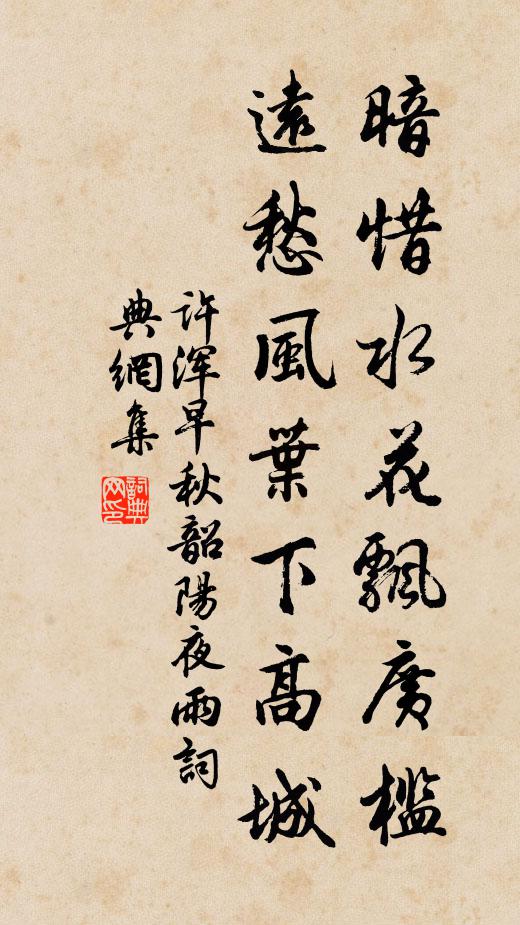 暗惜水花飄廣檻
遠愁風葉下高城
許渾早秋韶陽夜雨詞
典網集
詞典網印